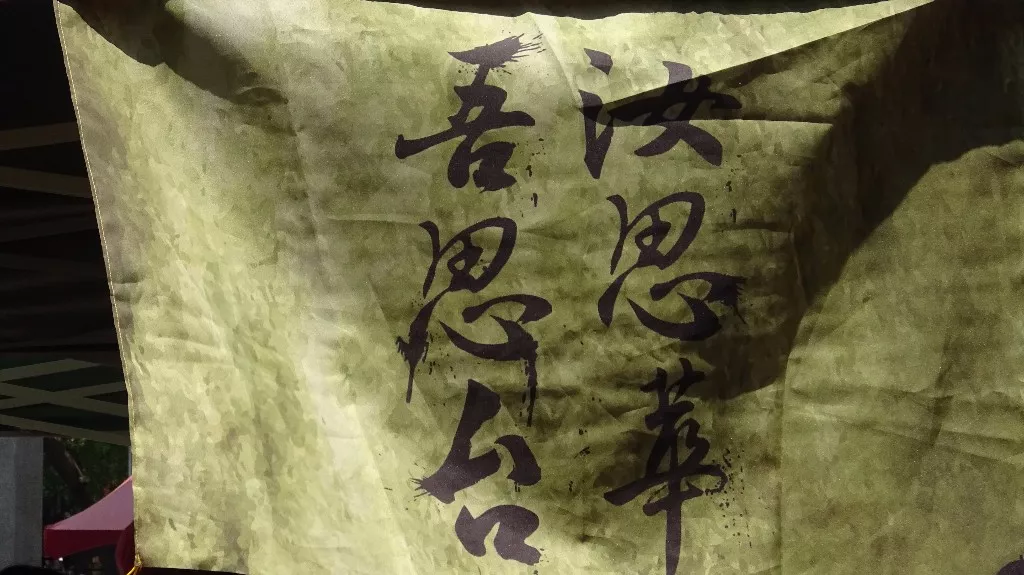 汝思華
吾思台